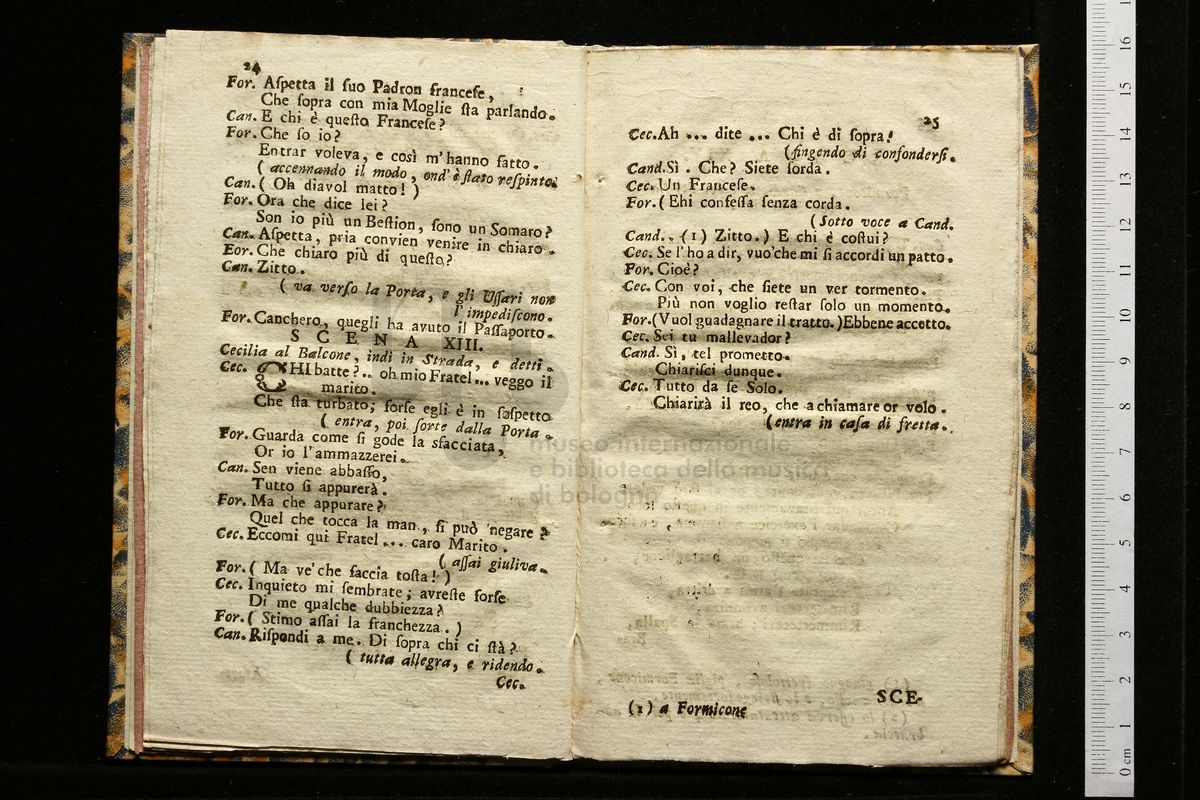 24
For. Aſpetta il ſuo Padron franceſe,
Che ſopra con mia Moglie ſta parlando.
Can. E chi è queſto Franceſe?
For. Che ſo io?
Entrar voleva, e così m'hanno fatto.
( accennando il modo, ond' è ſtato reſpinto.
Can. ( Oh diavol matto! )
For. Ora che dice lei?
Son io più un Beſtion, ſono un Somaro?
Can. Aſpetta, pria convien venire in chiaro.
Eor. Che chiaro più di queſto?
Can. Zitto.
( va verſo la Porta, e gli Uſſari non
l'impediſcono.
For. Canchero, quegli ha avuto il Paſſaporto.
SCENA XIII.
Cecilia al Balcone, indi in Strada, e detti.
Cec. CHI batte?.. oh mio Fratel... veggo il
marito.
Che ſta turbato; forſe egli è in ſoſpetto
( entra, poi ſorte dalla Porta.
For. Guarda come ſi gode la sfacciata,
Or io l'ammazzerei.
Can. Sen viene abbaſſo,
Tutto ſi appurerà.
For. Ma che appurare?
Quel che tocca la man, ſi può negare?
Cec. Eccomi qui Fratel... caro Marito.
( aſſai giuliva.
For. ( Ma ve' che faccia toſta! )
Cec. Inquieto mi ſembrate; avreſte forſe
Di me qualche dubbiezza?
For. ( Stimo aſſai la franchezza.. )
Can. Riſpondi a me. Di ſopra chi ci ſtà?
( tutta allegra, e ridendo.
Cec.
25
Cec. Ah ... dite ... Chi è di ſopra!
(fingendo di confonderſi.
Cand. Sì. Che? Siete ſorda.
Cec. Un Franceſe.
For. ( Ehi confeſſa ſenza corda.
(Sotto voce a Cand.
Cand.. (1) Zitto.) E chi è coſtui?
Cec. Se l'ho a dir, vuo'che mi ſi accordi un patto.
For. Cioè?
Cec. Con voi, che ſiete un ver tormento.
Più non voglio reſtar ſolo un momento.
For. (Vuol guadagnare il tratto.) Ebbene accetto.
Cec. Sei tu mallevador?
Cand. Sì, tel prometto.
Chiariſci dunque.
Cec. Tutto da ſe Solo.
Chiarirà il reo, che a chiamare or volo.
(entra in caſa di fretta.
SCE-
(1) a Formicone
museo internazionale
e biblioteca della musica
di bologna
0 cm 1 2 3 4 5 6 7 8 9 10 11 12 13 14 15 16